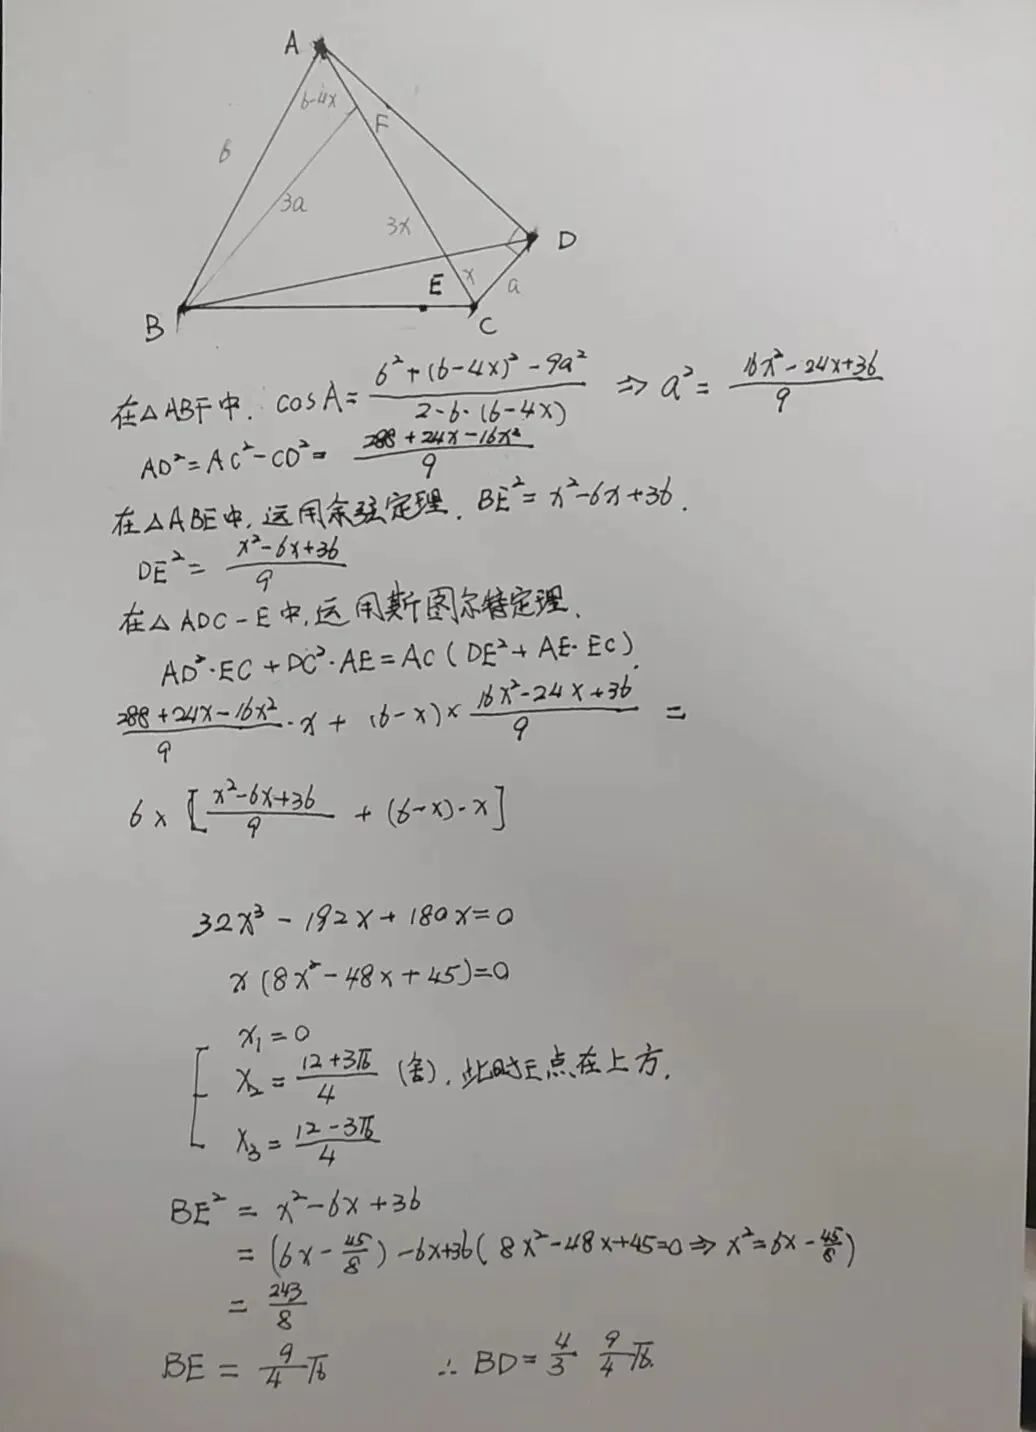 A
6-4x
F
6
3a
3x
D
E
x
a
B
C
在△ABF中. cosA = \frac{6²+(6-4x)²-9a²}{2·6·(6-4x)} ⇒ a² = \frac{16x²-24x+36}{9}
AD²=AC²-CD²= \frac{288+24x-16x²}{9}
在△ABE中,运用余弦定理. BE²= x²-6x+36.
DE²= \frac{x²-6x+36}{9}
在△ADC-E中,运用斯图尔特定理.
AD²·EC+DC²·AE=AC(DE²+AE·EC).
\frac{288+24x-16x²}{9}·x+(6-x)×\frac{16x²-24x+36}{9} =
6×[\frac{x²-6x+36}{9} +(6-x)·x]
32x³-192x+180x=0
x(8x²-48x+45)=0
x₁=0
x₂=\frac{12+3√6}{4} (舍). 此时E点在上方.
x₃=\frac{12-3√6}{4}
BE² = x²-6x+36
=(6x-\frac{45}{8})-6x+36(8x²-48x+45=0⇒x²=6x-\frac{45}{8})
= \frac{243}{8}
BE = \frac{9}{4}√6 ∴BD=\frac{4}{3} \frac{9}{4}√6.